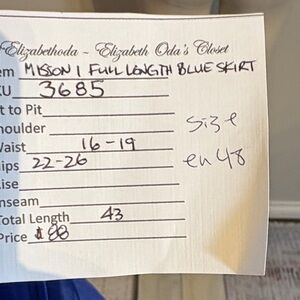 Elizabethoda ~ Elizabeth Oda's Closet
em MISSONI FULL LENGTH BLUE SKIRT
KU 3685
t to Pit
houlder
Vaist 16-19
ips 22-26
ise
nseam
Total Length 43
Price $88
size
en 48